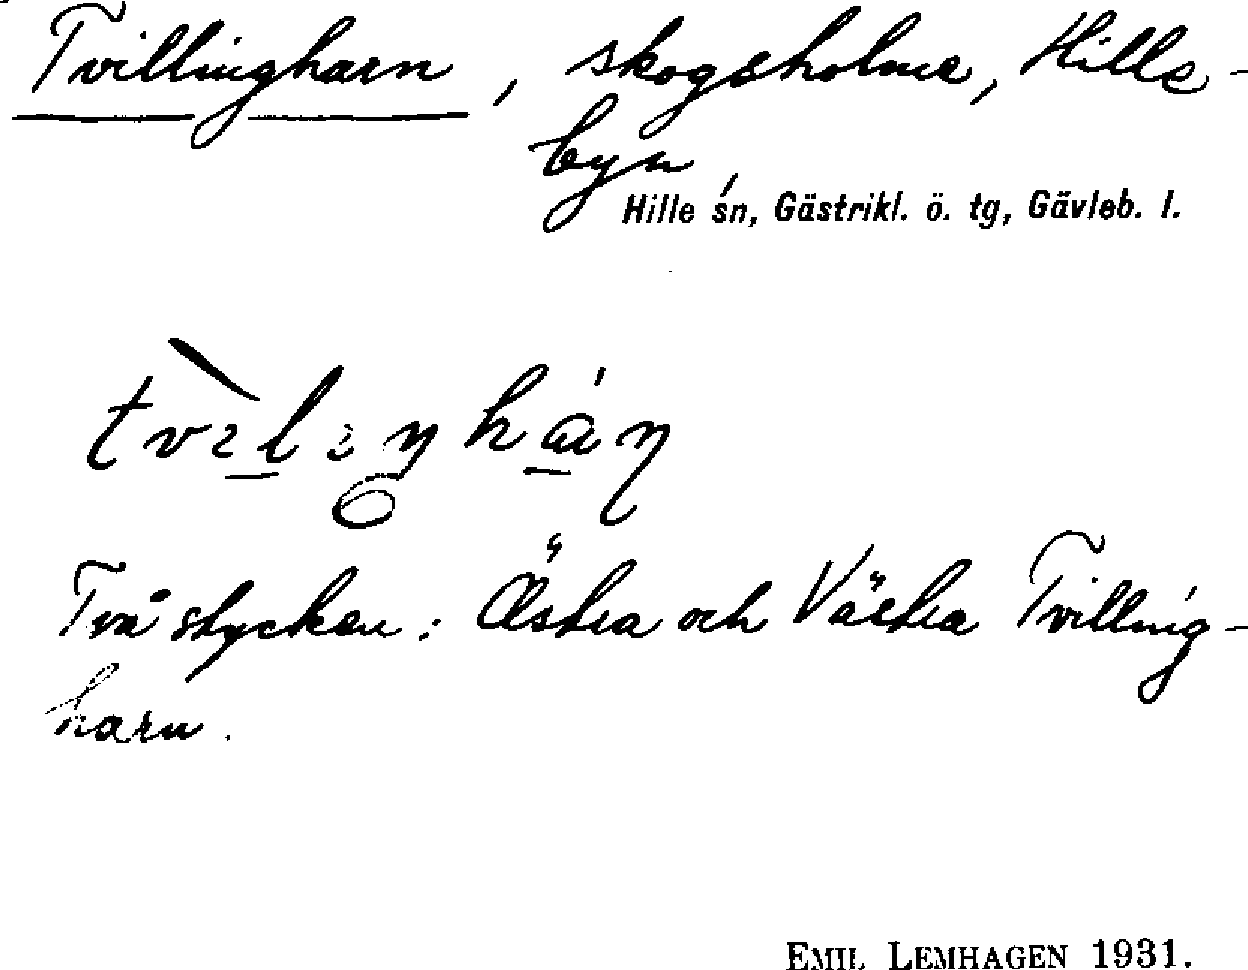 Tvillingharn, skogsholme, Hille-
byn,
Hille sn, Gästrikl. ö. tg, Gävleb. l.
Två stycken: Östra och Västra Tvilling-
harn.
EMIL LEMHAGEN 1931.